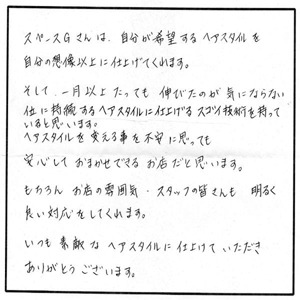 スペースGさんは、自分が希望するヘアスタイルを
自分の想像以上に仕上げてくれます。
そして、一月以上たっても 伸びたのが 気にならない
位に持続するヘアスタイルに仕上げる スゴイ技術を持って
いると思います。
ヘアスタイルを変える事を不安に思っても
安心して おまかせできる お店だと思います。
もちろん お店の雰囲気・スタッフの皆さんも 明るく
良い対応をしてくれます。
いつも 素敵な ヘアスタイルに仕上げて いただき
ありがとう ございます。